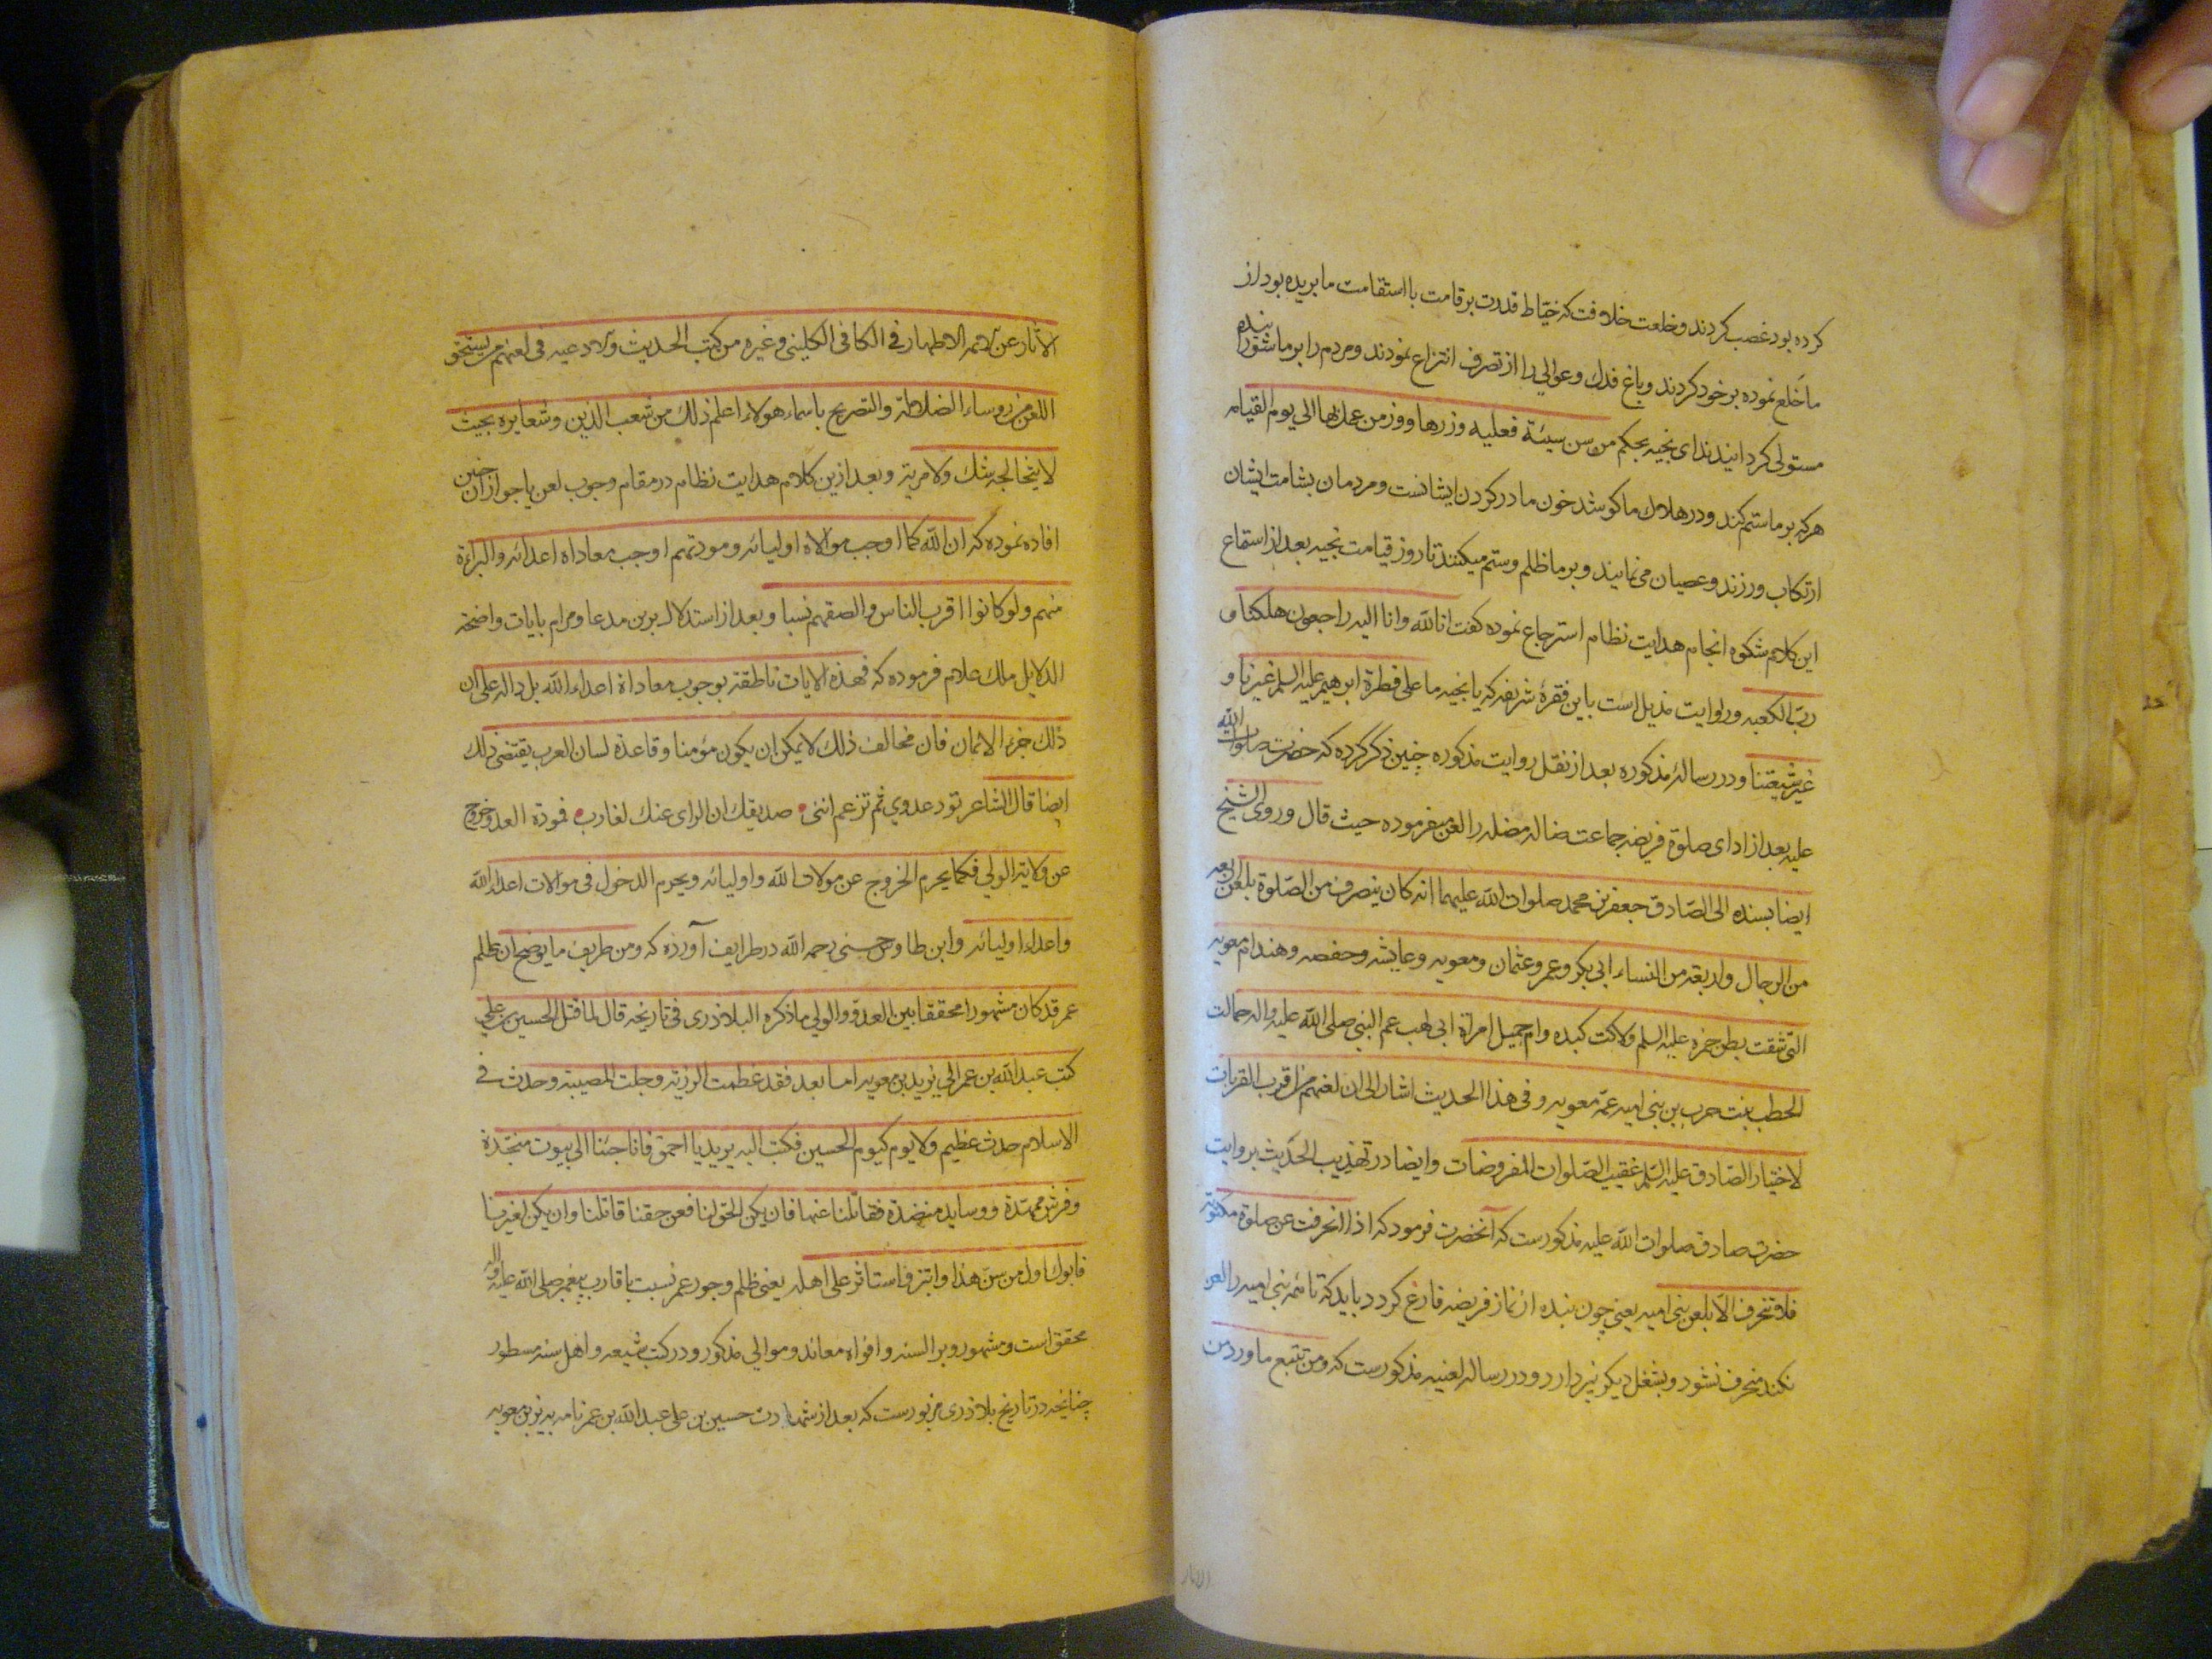 کرده بود غصب کردند و خلعت خلافت که خیّاط قدرت بر قامت با استقامت ما بریده بود از
ما خلع نموده بر خود کردند و باغ فدك و عوالی را از تصرف انتزاع نمودند و مردم را بر ما
مستولی کردانیدند ای نجیه بحکم من سن سیئة فعلیه وزرها و وزر من عمل بها الی یوم القیامه
هرکه بر ما ستم کند و در هلاك ما کوشد خون ما در کردن ایشانست و مردمان بشامت ایشان
ارتکاب ورزند و عصیان می نمایند و بر ما ظلم و ستم میکنند تا روز قیامت نجیه بعد از استماع
این کلام شکوه انجام هدایت نظام استرجاع نموده کفت انا لله و انا الیه راجعون هلکنا و
ربّ الکعبه و روایت مذیل است باین فقرهٔ شریفه که یا نجیه ما علی فطرة ابرهیم علیه السلم غیرنا و
غیر شیعتنا و در رسالهٔ مذکوره بعد از نقل روایت مذکوره چنین ذکر کرده که حضرت صلوات الله
علیه بعد از ادای صلوة فریضه جماعت ضاله مضله را لعن میفرموده حیث قال و روی الشیخ
ایضا بسنده الی الصّادق جعفر بن محمد صلوات الله علیهما انه کان ینصرف من الصّلوة بلعن اربعه
من الرجال و اربعة من النساء ابی بکر و عمر و عثمان و معویه و عایشه و حفصه و هند ام معویه
التی شقت بطن حمزه علیه السلم و لاکت کبده و ام جمیل امرأة ابی لهب عم النبی صلی الله علیه و اله حمالت
الحطب بنت حرب بن بنی امیه عمّة معویه و فی هذا الحدیث اشار الی ان لعنهم من اقرب القربات
لاختیار الصّادق علیه السّلم عقیب الصّلوات المفروضات و ایضا در تهذیب الحدیث بروایت
حضرت صادق صلوات الله علیه مذکورست که آنحضرت فرمود که اذا انحرفت عن صلوة مکتوبة
فلا تنحرف الّا بلعن بنی امیه یعنی چون بنده از نماز فریضه فارغ کردد باید که تا ائمه بنی امیه را لعن
نکند منحرف نشود و بشغل دیکر نپردازد و در رساله لعنیه مذکورست که و من تتبع ما ورد من
الاثار
الاثار عن الائمه الاطهار فی الکافی الکلینی و غیره من کتب الحدیث و الادعیه فی لعنهم من یستحق
اللعن من روساء الضلالة و التصریح باسماء هولاء اعلم ذلك من شعب الدّین و شعایره بحیث
لا یتخالجه شك و لا مریة و بعد ازین کلام هدایت نظام در مقام وجوب لعن یا جواز آن چنین
افاده نموده که ان الله کما اوجب موالاة اولیائه و مودتهم اوجب معاداة اعدائه و البراءة
منهم و لو کانوا اقرب الناس و الصقهم نسبا و بعد از استدلال برین مدعا و مرام بایات واضحة
الدلایل ملك علام فرموده که فهذه الایات ناطقة بوجوب معاداة اعداء الله بل دالة علی ان
ذلك جزء الایمان فان مخالف ذلك لا یمکن ان یکون مؤمنا و قاعدة لسان العرب یقتضی ذلك
ایضا قال الشاعر تود عدوي ثم تزعم اننی صدیقك ان الرای عنك لغارب فمودة العدو خروج
عن ولایة الولی فکما یحرم الخروج عن موالات الله و اولیائه و یحرم الدخول فی موالات اعداء الله
و اعداء اولیائه و ابن طاوس حسنی رحمه الله در طرایف آورده که و من طریف ما یوضح ان ظلم
عمر قد کان مشهورا محققا بین العدوّ و الولی ما ذکره البلاذری فی تاریخه قال لما قتل الحسین بن علي
کتب عبد الله بن عمر الی یزید بن معویه اما بعد فقد عظمت الرزیة و جلت المصیبة و حدث فی
الاسلام حدث عظیم و لا یوم کیوم الحسین فکتب الیه یزید یا احمق فانا جئنا الی بیوت منجّدة
و فرش ممهّدة و وساید منضدة فقاتلنا عنها فان یکن الحق لنا فعن حقنا قاتلنا و ان یکن لغیرنا
فابوك اول من سنّ هذا و ابتزّ و استاثر علی اهله یعنی ظلم و جور عمر نسبت باقارب پیغمبر صلی الله علیه و اله
محقق است و مشهور و بر السنه و افواه معاند و موالی مذکور و در کتب شیعه و اهل سنه مسطور
چنانچه در تاریخ بلاذری مزبورست که بعد از شهادت حسین بن علی عبد الله بن عمر نامه بیزید بن معویه